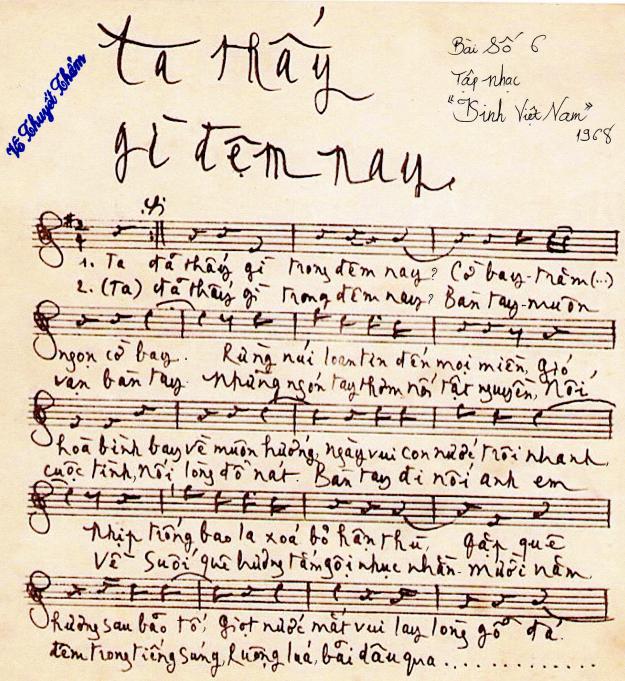 Ta thấy
gì đêm nay.
Bài Số 6
Tập nhạc
"Kinh Việt Nam"
1968
Võ Thuyết Thám
1. Ta đã thấy gì trong đêm nay? Cờ bay trăm (...)
2. (Ta) đã thấy gì trong đêm nay? Bàn tay muôn
ngọn cờ bay. Rừng núi loan tin đến mọi miền, gió
vạn bàn tay. Những ngón tay thơm nối tật nguyền, Nối
hoà bình bay về muôn hướng, ngày vui con nước trôi nhanh,
cuộc tình, nối lòng đổ nát. Bàn tay đi nối anh em
nhịp trống bao la xoá bỏ hận thù, gặp quê
Về suối quê hương tắm gội nhục nhằn. Mười năm
hương sau bão tố, giọt nước mắt vui lay lòng gỗ đá.
đêm trong tiếng súng, Ruộng lúa, bãi dâu qua . . . . . . . . . . . .